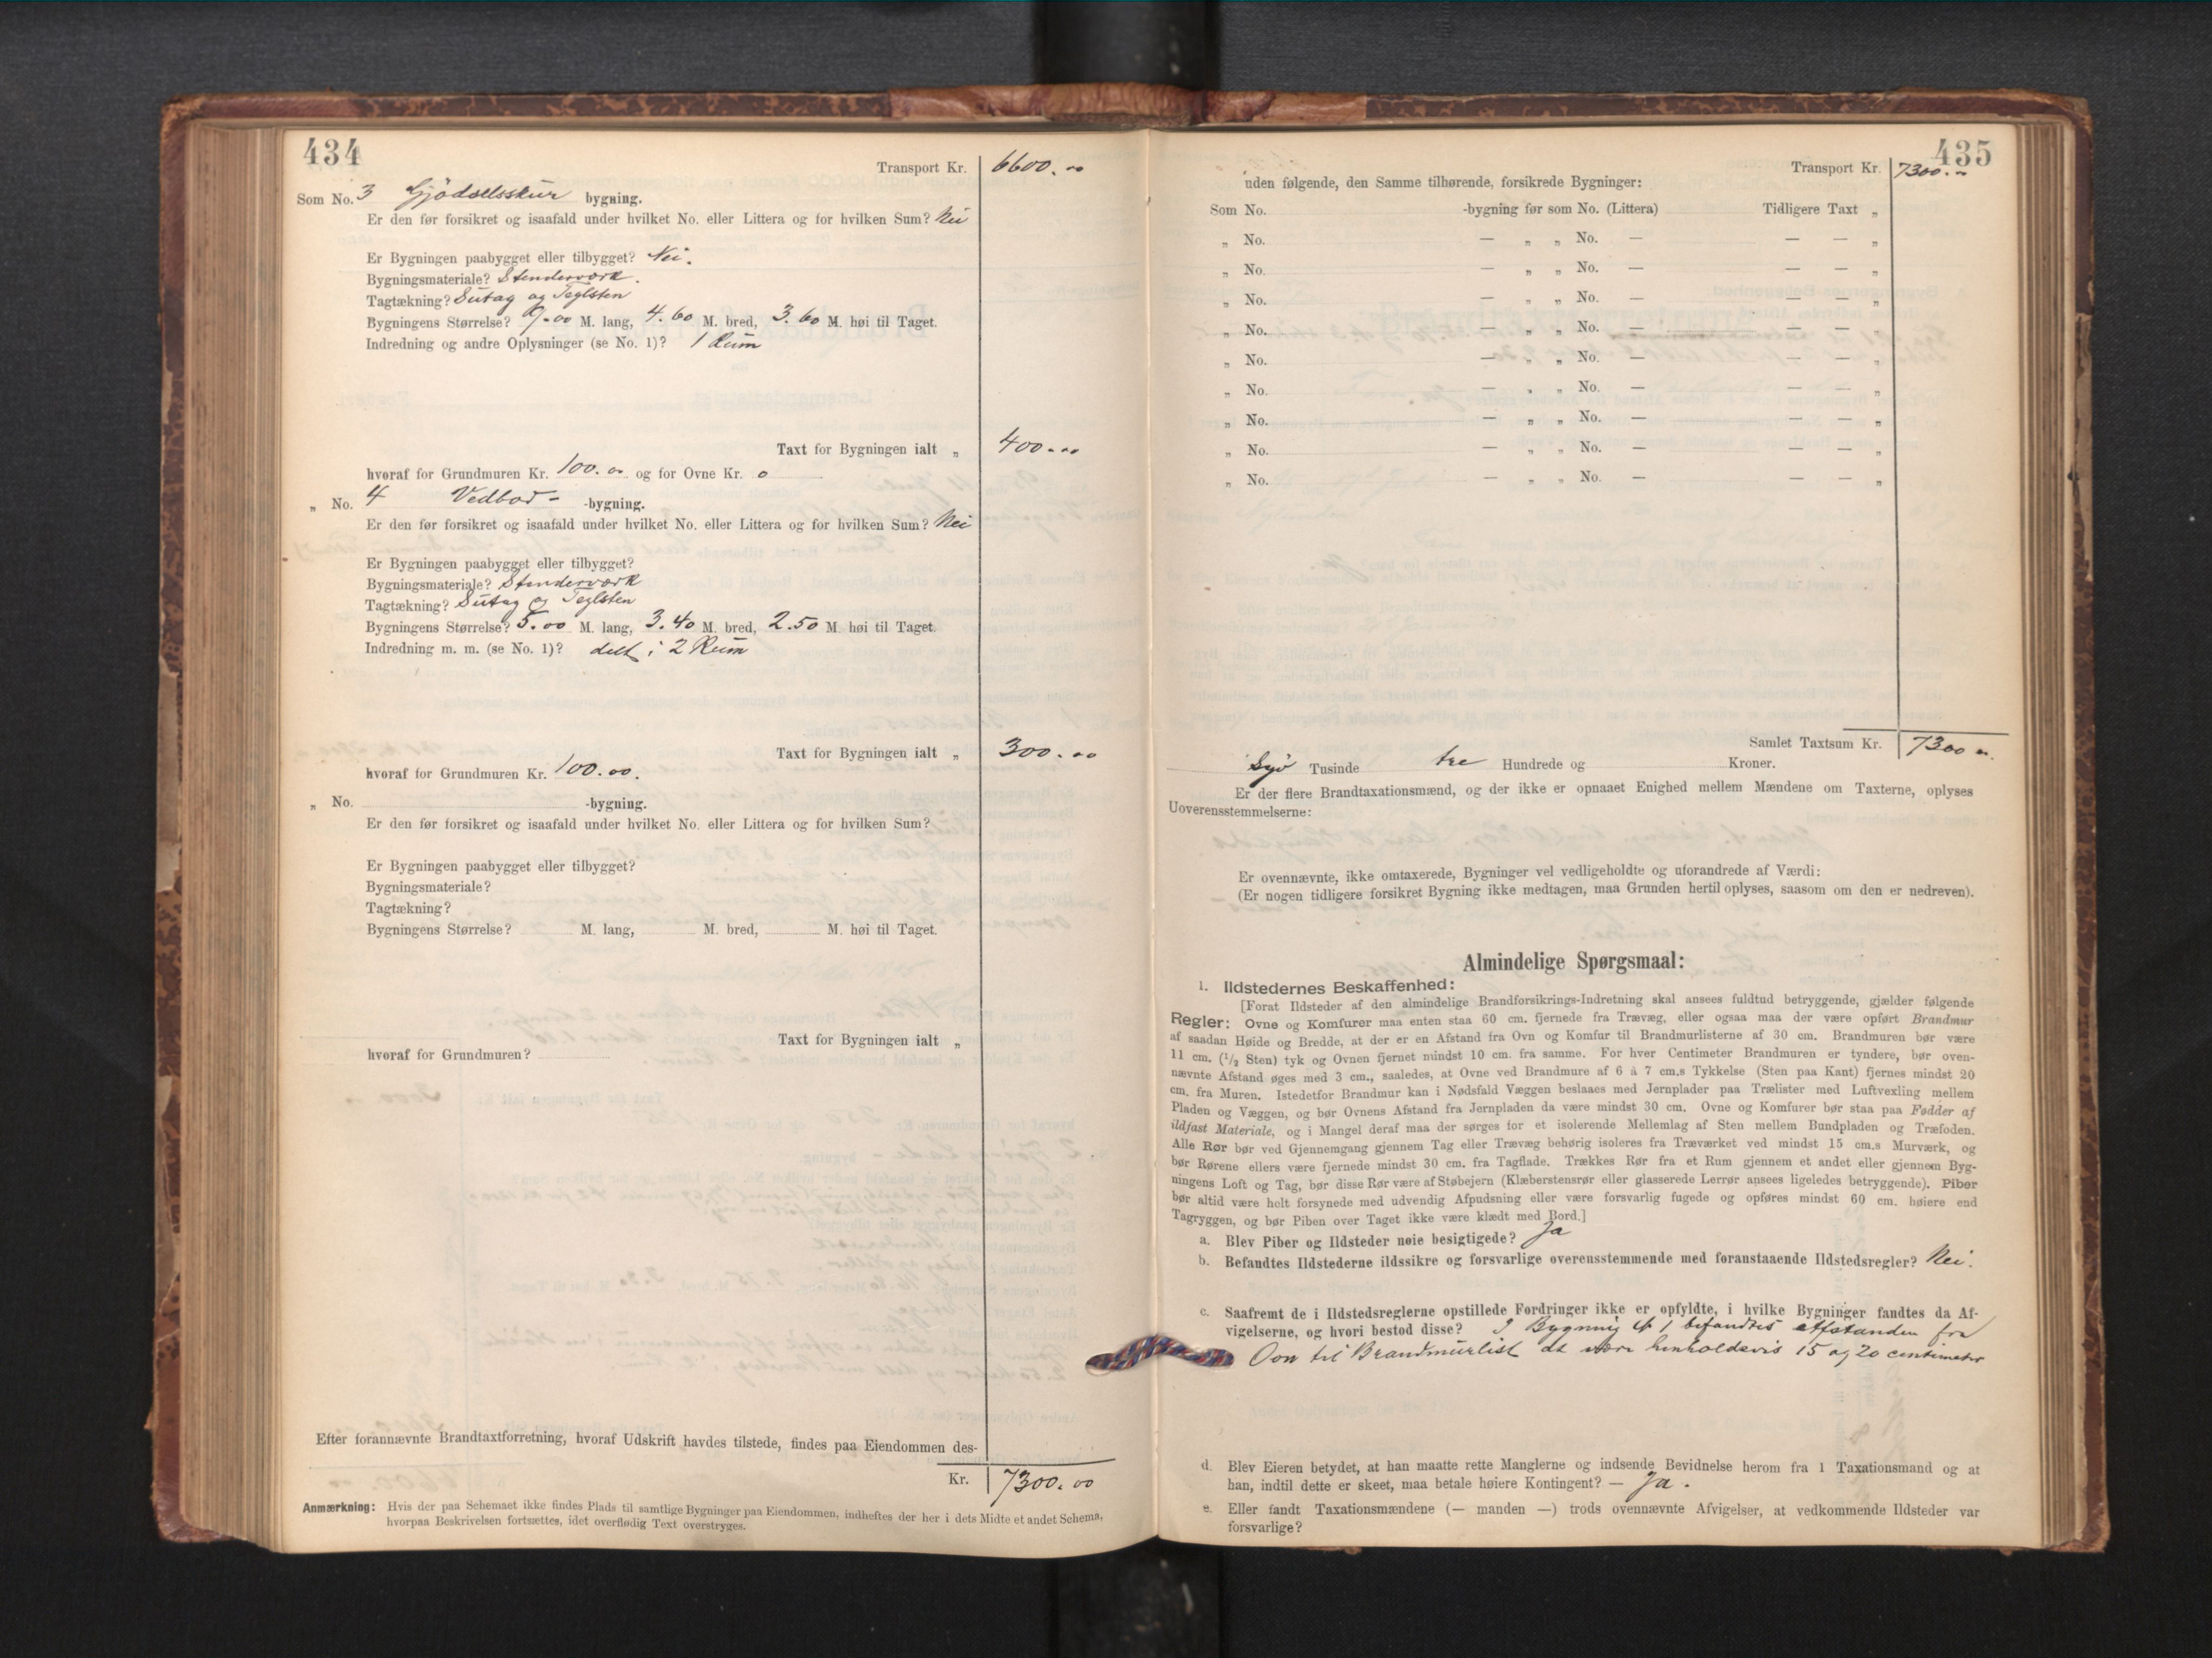 434
Transport Kr. 6600.00
Som No. 3 Gjödselsskur bygning.
Er den før forsikret og isaafald under hvilket No. eller Littera og for hvilken Sum? Nei
Er Bygningen paabygget eller tilbygget? Nei.
Bygningsmateriale? Stenderværk.
Tagtækning? Sutag og Teglsten
Bygningens Størrelse? 9.00 M. lang, 4.60 M. bred, 3.60 M. høi til Taget.
Indredning og andre Oplysninger (se No. 1)? 1 Rum
Taxt for Bygningen ialt „ 400.00
hvoraf for Grundmuren Kr. 100.00 og for Ovne Kr. 0
„ No. 4 Vedbod- -bygning.
Er den før forsikret og isaafald under hvilket No. eller Littera og for hvilken Sum? Nei
Er Bygningen paabygget eller tilbygget?
Bygningsmateriale? Stenderværk
Tagtækning? Sutag og Teglsten
Bygningens Størrelse? 5.00 M. lang, 3.40 M. bred, 2.50 M. høi til Taget.
Indredning m. m. (se No. 1)? delt i 2 Rum
Taxt for Bygningen ialt „ 300.00
hvoraf for Grundmuren Kr. 100.00.
„ No. -bygning.
Er den før forsikret og isaafald under hvilket No. eller Littera og for hvilken Sum?
Er Bygningen paabygget eller tilbygget?
Bygningsmateriale?
Tagtækning?
Bygningens Størrelse? M. lang, M. bred, M. høi til Taget.
Taxt for Bygningen ialt „
hvoraf for Grundmuren?
Efter forannævnte Brandtaxtforretning, hvoraf Udskrift havdes tilstede, findes paa Eiendommen des-
Kr. 7300.00
Anmærkning: Hvis der paa Schemaet ikke findes Plads til samtlige Bygninger paa Eiendommen, indheftes der her i dets Midte et andet Schema,
hvorpaa Beskrivelsen fortsættes, idet overflødig Text overstryges.
435
Transport Kr. 7300.00
uden følgende, den Samme tilhørende, forsikrede Bygninger:
Som No. -bygning før som No. (Littera) Tidligere Taxt „
„ No. — „ „ No. — — — „
„ No. — „ „ No. — — — „
„ No. — „ „ No. — — — „
„ No. — „ „ No. — — — „
„ No. — „ „ No. — — — „
„ No. — „ „ No. — — — „
„ No. — „ „ No. — — — „
„ No. — „ „ No. — — — „
„ No. — „ „ No. — — — „
Samlet Taxtsum Kr. 7300 00.
Syv Tusinde tre Hundrede og Kroner.
Er der flere Brandtaxationsmænd, og der ikke er opnaaet Enighed mellem Mændene om Taxterne, oplyses
Uoverensstemmelserne:
Er ovennævnte, ikke omtaxerede, Bygninger vel vedligeholdte og uforandrede af Værdi:
(Er nogen tidligere forsikret Bygning ikke medtagen, maa Grunden hertil oplyses, saasom om den er nedreven).
Almindelige Spørgsmaal:
1. Ildstedernes Beskaffenhed:
[Forat Ildsteder af den almindelige Brandforsikrings-Indretning skal ansees fuldtud betryggende, gjælder følgende
Regler: Ovne og Komfurer maa enten staa 60 cm. fjernede fra Trævæg, eller ogsaa maa der være opført Brandmur
af saadan Høide og Bredde, at der er en Afstand fra Ovn og Komfur til Brandmurlisterne af 30 cm. Brandmuren bør være
11 cm. (1/2 Sten) tyk og Ovnen fjernet mindst 10 cm. fra samme. For hver Centimeter Brandmuren er tyndere, bør oven-
nævnte Afstand øges med 3 cm., saaledes, at Ovne ved Brandmure af 6 à 7 cm.s Tykkelse (Sten paa Kant) fjernes mindst 20
cm. fra Muren. Istedetfor Brandmur kan i Nødsfald Væggen beslaaes med Jernplader paa Trælister med Luftvexling mellem
Pladen og Væggen, og bør Ovnens Afstand fra Jernpladen da være mindst 30 cm. Ovne og Komfurer bør staa paa Fødder af
ildfast Materiale, og i Mangel deraf maa der sørges for et isolerende Mellemlag af Sten mellem Bundpladen og Træfoden.
Alle Rør bør ved Gjennemgang gjennem Tag eller Trævæg behørig isoleres fra Træværket ved mindst 15 cm.s Murværk, og
bør Rørene ellers være fjernede mindst 30 cm. fra Tagflade. Trækkes Rør fra et Rum gjennem et andet eller gjennem Byg-
ningens Loft og Tag, bør disse Rør være af Støbejern (Klæberstensrør eller glasserede Lerrør ansees ligeledes betryggende). Piber
bør altid være helt forsynede med udvendig Afpudsning eller være forsvarlig fugede og opføres mindst 60 cm. høiere end
Tagryggen, og bør Piben over Taget ikke være klædt med Bord.]
a. Blev Piber og Ildsteder nøie besigtigede? Ja
b. Befandtes Ildstederne ildssikre og forsvarlige overensstemmende med foranstaaende Ildstedsregler? Nei.
c. Saafremt de i Ildstedsreglerne opstillede Fordringer ikke er opfyldte, i hvilke Bygninger fandtes da Af-
vigelserne, og hvori bestod disse? I Bygning № 1 befandtes Afstanden fra
Ovn til Brandmurlist at være henholdsvis 15 og 20 centimeter
d. Blev Eieren betydet, at han maatte rette Manglerne og indsende Bevidnelse herom fra 1 Taxationsmand og at
han, indtil dette er skeet, maa betale høiere Kontingent? — Ja.
e. Eller fandt Taxationsmændene (— manden —) trods ovennævnte Afvigelser, at vedkommende Ildsteder var
forsvarlige?